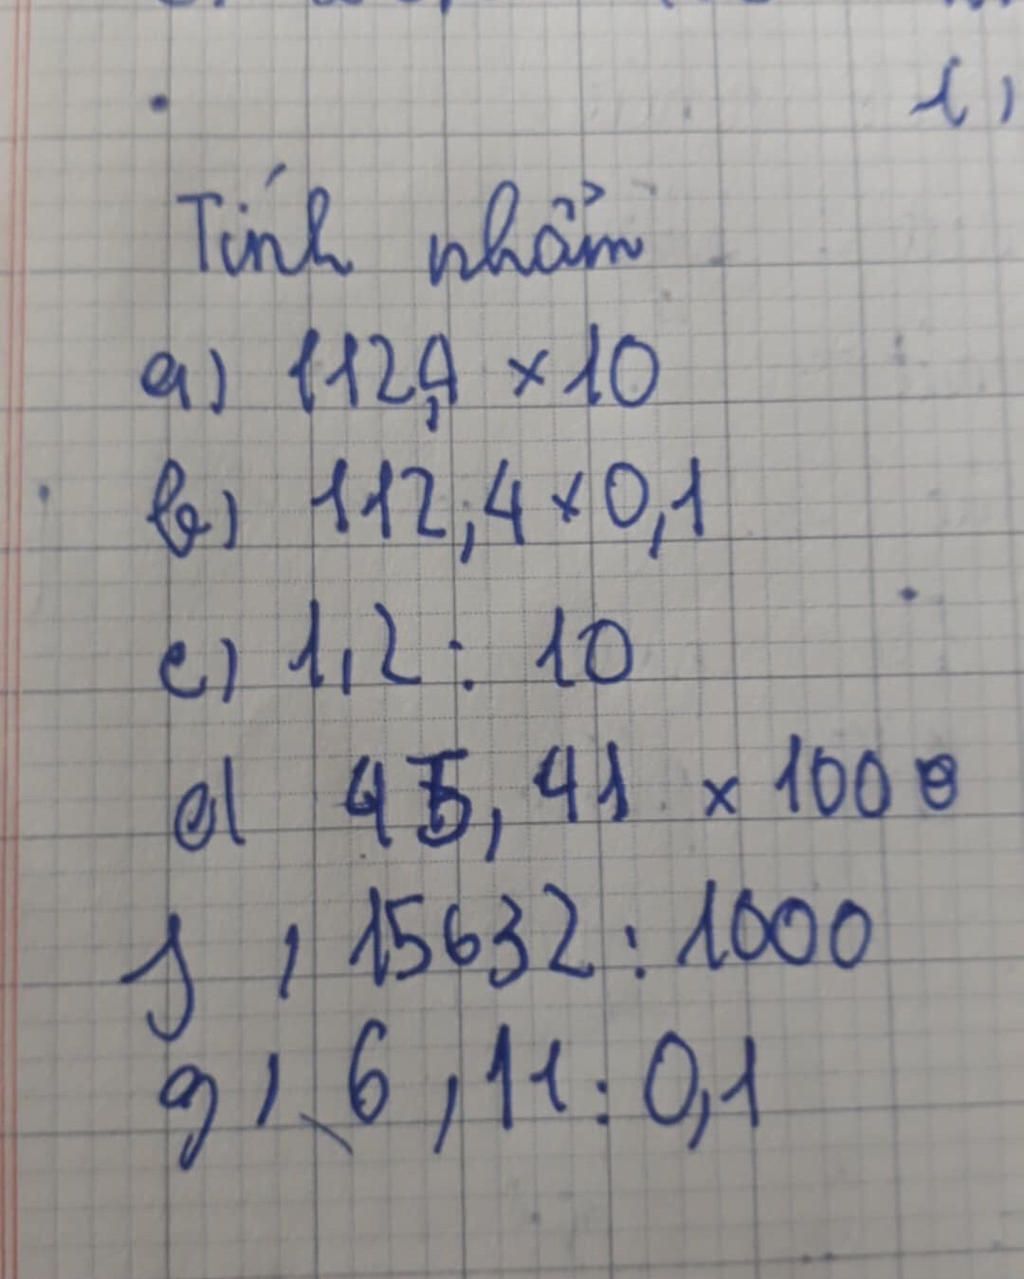 Tính nhẩm
a) 112,4 × 10
b) 112,4 × 0,1
c) 1,2 : 10
d) 45,41 × 1000
f, 15632 : 1000
g, 6,11 : 0,1